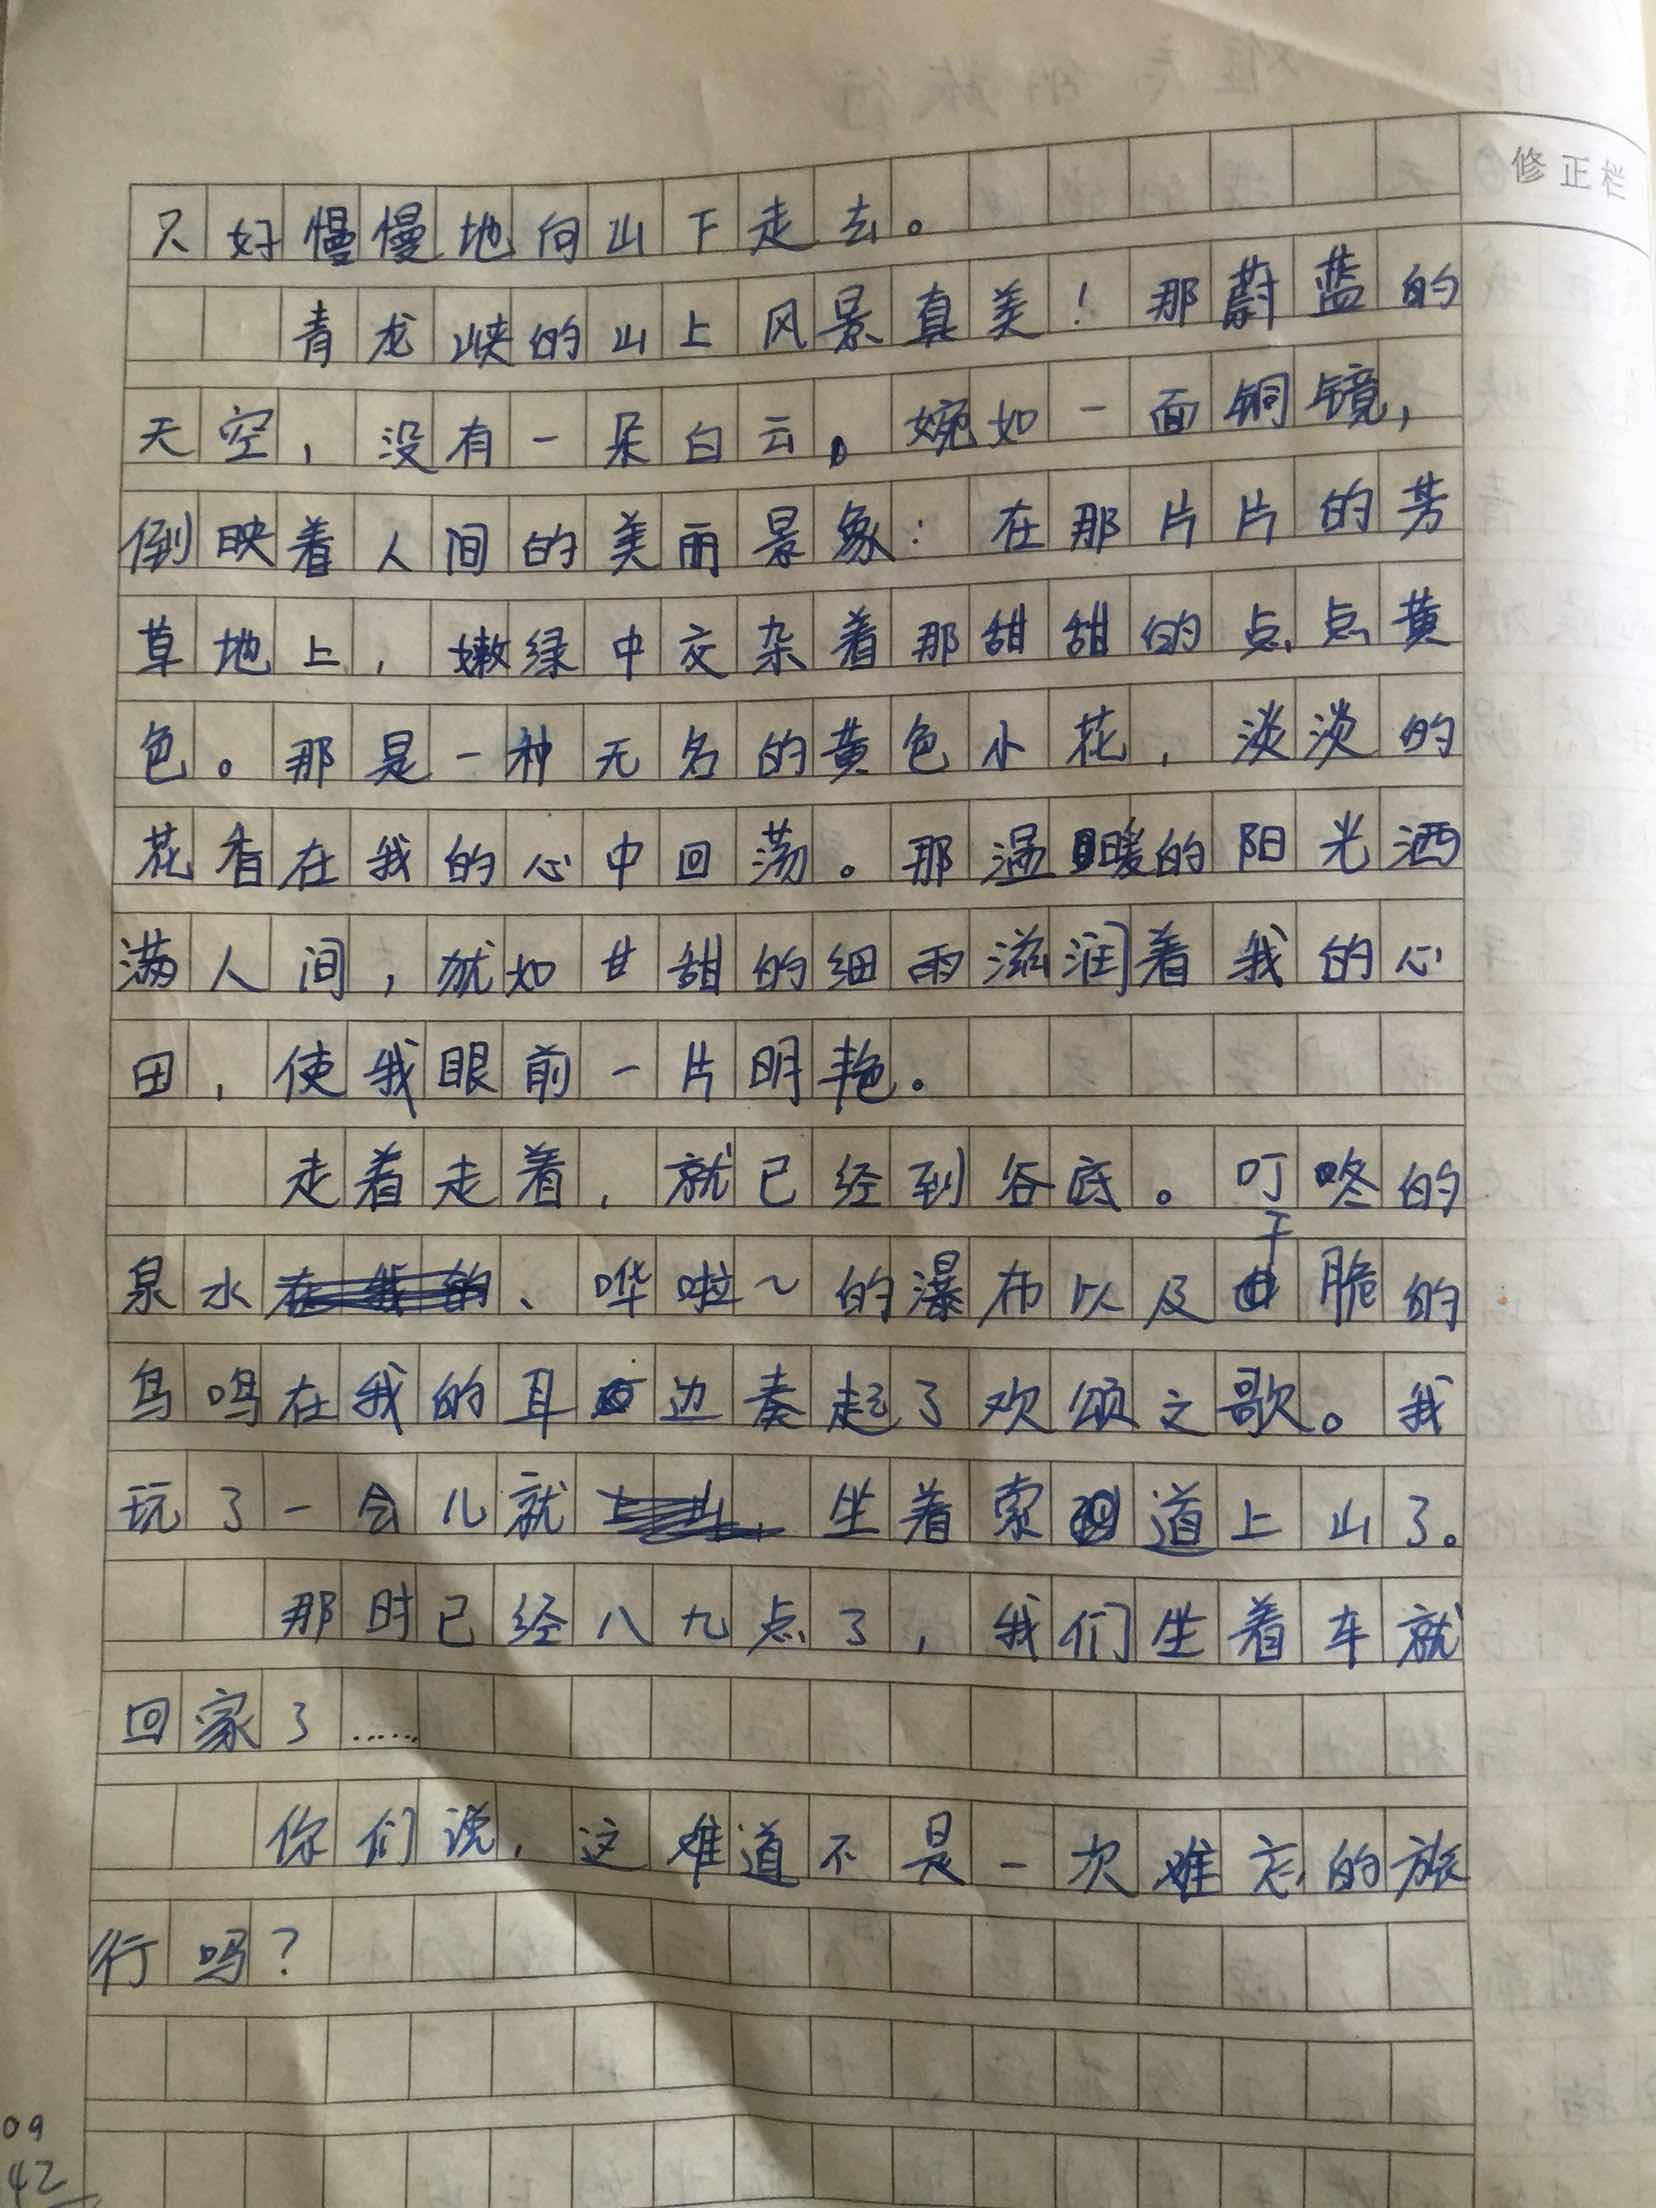 修正栏
只好慢慢地向山下走去。
青龙峡的山上风景真美！那蔚蓝的
天空，没有一朵白云。婉如一面铜镜，
倒映着人间的美丽景象：在那片片的芳
草地上，嫩绿中交杂着那甜甜的点点黄
色。那是一种无名的黄色小花，淡淡的
花香在我的心中回荡。那温暖的阳光洒
满人间，犹如甘甜的细雨滋润着我的心
田，使我眼前一片明艳。
走着走着，就已经到谷底。叮咚的
泉水、哗啦～的瀑布以及干脆的
鸟鸣在我的耳边奏起了欢颂之歌。我
玩了一会儿就坐着索道上山了。
那时已经八九点了，我们坐着车就
回家了……
你们说，这难道不是一次难忘的旅
行吗？
09
42